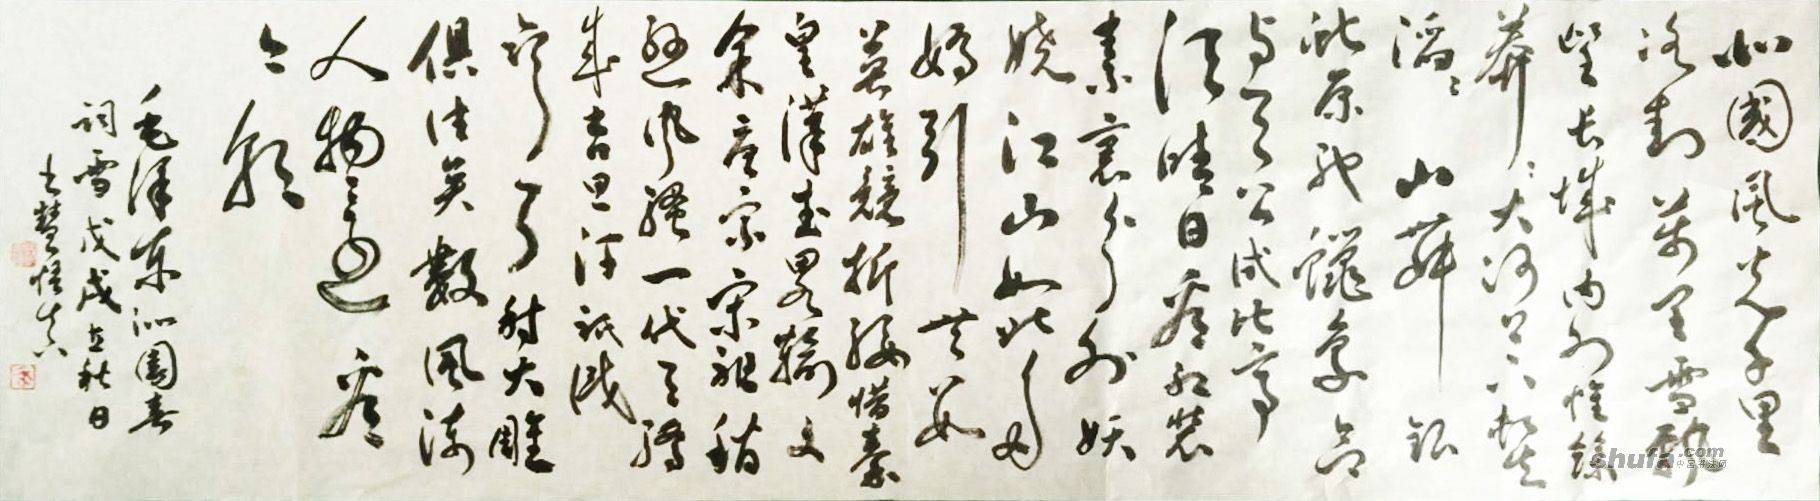 北國風光千里
冰封萬里雪飄
望長城内外惟餘
莽〻大河上下頓失
滔〻山舞銀
蛇原馳蠟象欲
與天公試比高
須晴日看紅裝
素裹分外妖
嬈江山如此多
嬌引無數
英雄競折腰惜秦
皇漢武略輸文
采唐宗宋祖稍
遜風騷一代天驕
成吉思汗祇識
彎弓射大雕
俱往矣數風流
人物還看
今朝
毛澤東沁園春
詞雪戊戌立秋日
shufa.com
中国书法师